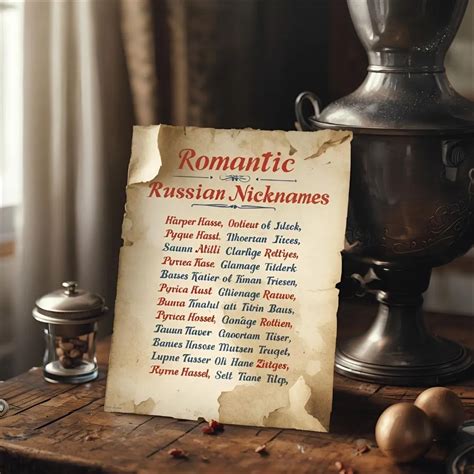 Romantic
Russian Nicknames
Härper Hasse, Ootieur of Jdsok,
Pyque Hassl. Thoertan Jisces,
Saunn Atili Clarfige Retlyes,
Pyrrea Kase. Glamage Tilderk
Batses Katier of Kinan Triesen,
Pyrica Kust Glilenage Ratuwe,
Buma Tinalul ati Titrin Baus,
Pyrica Hosst, Oanäge Rotlien,
Jauun Maver Gaoortam Iliser,
Banues Iinsose Mutsen Truget,
Lupne Tusser Oli Hane Zitges,
Kyrne Hassel, Selt Tane Tilp,